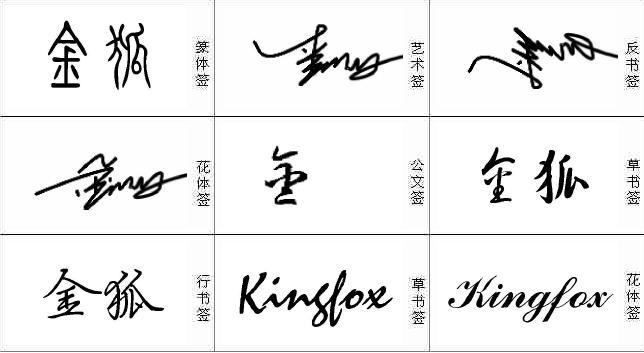 金狐
篆体签
艺术签
反书签
花体签
公文签
金狐
草书签
金狐
行书签
Kingfox
草书签
Kingfox
花体签